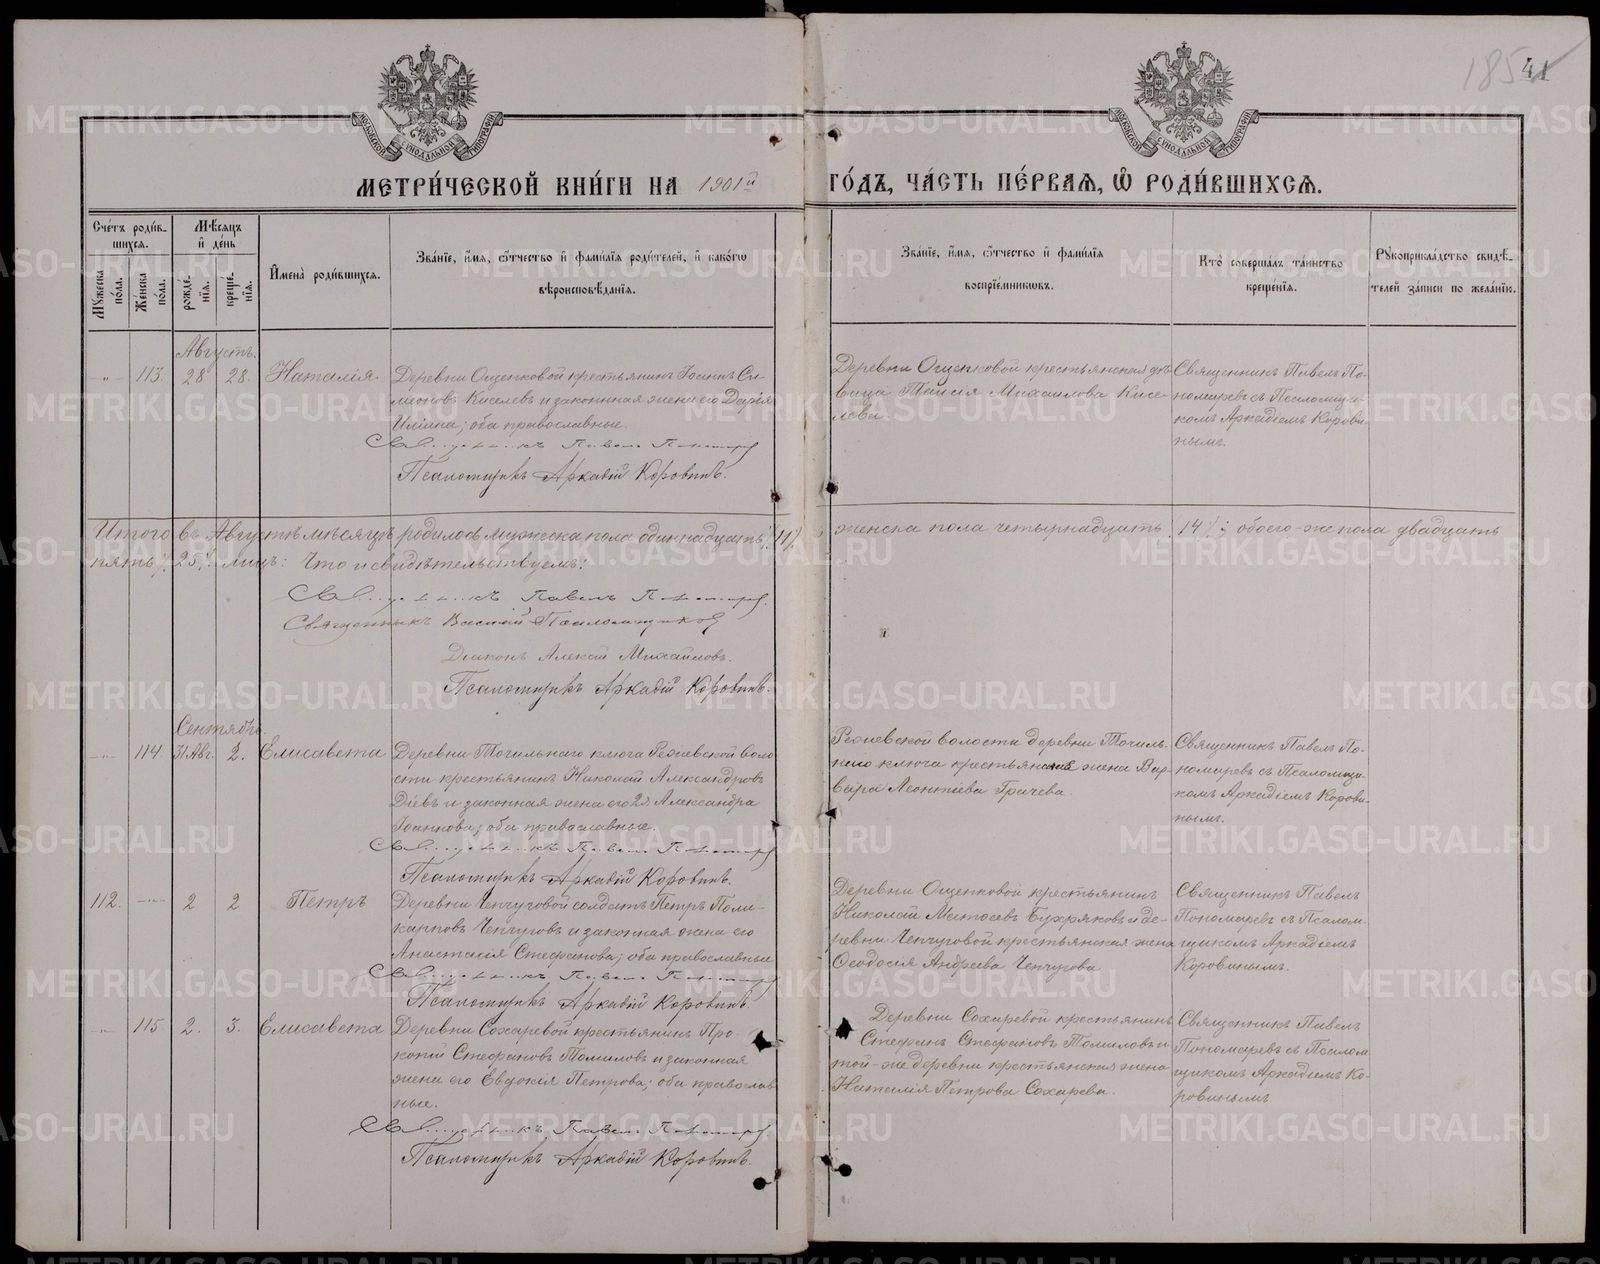 185 41
МОСКОВСКОЙ СѴНОДАЛЬНОЙ ТИПОГРАФІИ
МОСКОВСКОЙ СѴНОДАЛЬНОЙ ТИПОГРАФІИ
МЕТРИ́ЧЕСКОЙ КНИ́ГИ НА 1901й ГО́ДЪ, ЧА́СТЬ ПЕ́РВАѦ, Ѿ РОДИ́ВШИХСѦ.
Сче́тъ роди́в-
шихся.
Мѣ́сяцъ
и҆ де́нь
Мꙋ́жеска по́ла.
Же́нска по́ла.
рожде́-
нїя.
креще́-
нїя.
И҆мена̀ роди́вшихся.
Зва́нїе, и҆́мя, ѻ҆́тчество и҆ фами́лїя роди́телей, и҆ како́гѡ
вѣроисповѣ́данїя.
Зва́нїе, и҆́мя, ѻ҆́тчество и҆ фами́лїя
воспрїе́мникѡвъ.
Кто̀ соверша́лъ та́инство
креще́нїя.
Рꙋкоприкла́дство свидѣ́-
телей за́писи по жела́нїю.
Августъ.
-„- 113. 28 28. Наталія
Деревни Ощепковой крестьянинъ Іоаннъ Си-
моновъ Киселевъ и законная жена его Дарія
Иліина; оба православные.
Священникъ Павелъ Пономаревъ
Псаломщикъ Аркадій Коровинъ.
Деревни Ощепковой крестьянская дѣ-
вица Таисія Михаилова Кисе-
лева.
Священникъ Павелъ По-
номаревъ съ Псаломщи-
комъ Аркадіемъ Корови-
нымъ.
Итого въ Августѣ мѣсяцѣ родилось мужеска пола одиннадцать /11/ женска пола четырнадцать /14/; обоего-же пола двадцать
пять /25/ лицъ: Что и свидѣтельствуемъ:
Священникъ Павелъ Пономаревъ
Священникъ Василій Псаломщиковъ
Діаконъ Алексій Михайловъ.
Псаломщикъ Аркадій Коровинъ.
Сентябрь
-„- 114 31 Авг. 2. Елисавета
Деревни Точильнаго ключа Режевской воло
сти крестьянинъ Николай Александровъ
Діевъ и законная жена его 2я Александра
Іоаннова; оба православные.
Священникъ Павелъ Пономаревъ
Псаломщикъ Аркадій Коровинъ.
Режевской волости деревни Точиль-
наго ключа крестьянская жена Вар-
вара Леонтіева Грачева.
Священникъ Павелъ По-
номаревъ съ Псаломщи-
комъ Аркадіемъ Корови-
нымъ.
112. -„- 2 2 Петръ
Деревни Чепчуговой солдатъ Петръ Поли-
карповъ Чепчуговъ и законная жена его
Анастасія Стефанова; оба православные
Священникъ Павелъ Пономаревъ
Псаломщикъ Аркадій Коровинъ.
Деревни Ощепковой крестьянинъ
Николай Матѳеевъ Бухряковъ и де-
ревни Чепчуговой крестьянская жена
Ѳеодосія Андреева Чепчугова
Священникъ Павелъ
Пономаревъ съ Псалом-
щикомъ Аркадіемъ
Коровинымъ.
-„- 115 2. 3. Елисавета
Деревни Сохаревой крестьянинъ Про-
копій Стефановъ Томиловъ и законная
жена его Евдокія Петрова; оба православ
ные.
Священникъ Павелъ Пономаревъ
Псаломщикъ Аркадій Коровинъ.
Деревни Сохаревой крестьянинъ
Стефанъ Стефановъ Томиловъ и
той-же деревни крестьянская жена
Наталія Петрова Сохарева.
Священникъ Павелъ
Пономаревъ съ Псалом
щикомъ Аркадіемъ Ко-
ровинымъ
METRIKI.GASO-URAL.RU